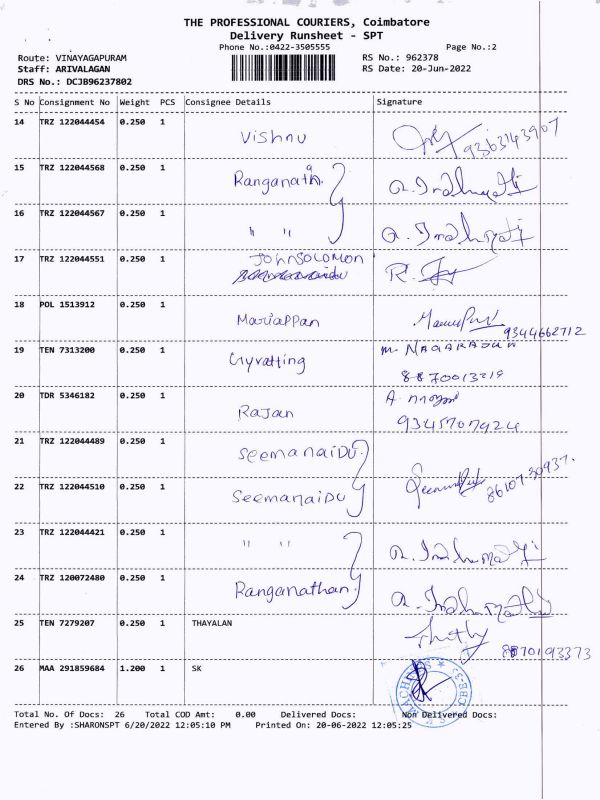 THE PROFESSIONAL COURIERS, Coimbatore
Delivery Runsheet - SPT
Phone No.:0422-3505555 Page No.:2
Route: VINAYAGAPURAM RS No.: 962378
Staff: ARIVALAGAN RS Date: 20-Jun-2022
DRS No.: DCJB96237802
S No Consignment No Weight PCS Consignee Details Signature
14 TRZ 122044454 0.250 1 Vishnu 9363143907
15 TRZ 122044568 0.250 1 Ranganath.
16 TRZ 122044567 0.250 1 " "
17 TRZ 122044551 0.250 1 JOHNSOLOMON
18 POL 1513912 0.250 1 Mariappan 9344662712
19 TEN 7313200 0.250 1 M. NAGARAJUN
20 TDR 5346182 0.250 1 Rajan
21 TRZ 122044489 0.250 1 SeemanaiDU
22 TRZ 122044510 0.250 1 SeemanaiDU 86107-30937.
23 TRZ 122044421 0.250 1 " "
24 TRZ 120072480 0.250 1 Ranganathan
25 TEN 7279207 0.250 1 THAYALAN 8870193373
26 MAA 291859684 1.200 1 SK
Total No. Of Docs: 26 Total COD Amt: 0.00 Delivered Docs: Non Delivered Docs:
Entered By :SHARONSPT 6/20/2022 12:05:10 PM Printed On: 20-06-2022 12:05:25